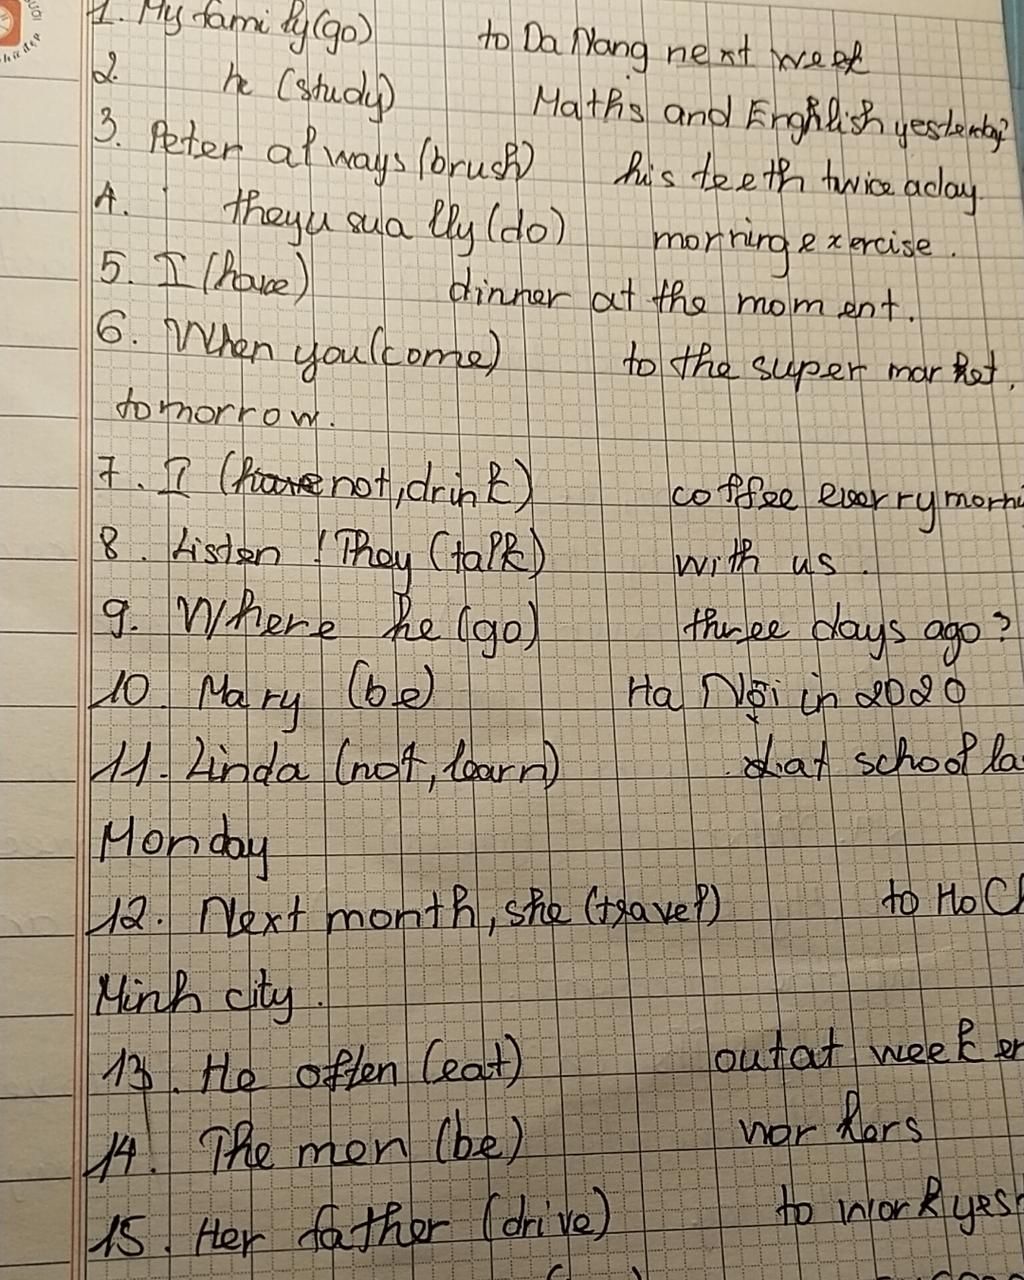 1. My family (go) to Da Nang next week
2. he (study) Maths and English yesterday?
3. Peter always (brush) his teeth twice a day.
4. they usually (do) morning exercise.
5. I (have) dinner at the moment.
6. When you (come) to the supermarket,
tomorrow.
7. I (not, drink) coffee every morni
8. Listen! They (talk) with us.
9. Where he (go) three days ago?
10. Mary (be) Ha Nội in 2020
11. Linda (not, learn) at school la
Monday
12. Next month, she (travel) to Ho Ch
Minh city.
13. He often (eat) out at week en
14. The men (be) workers
15. Her father (drive) to work yes